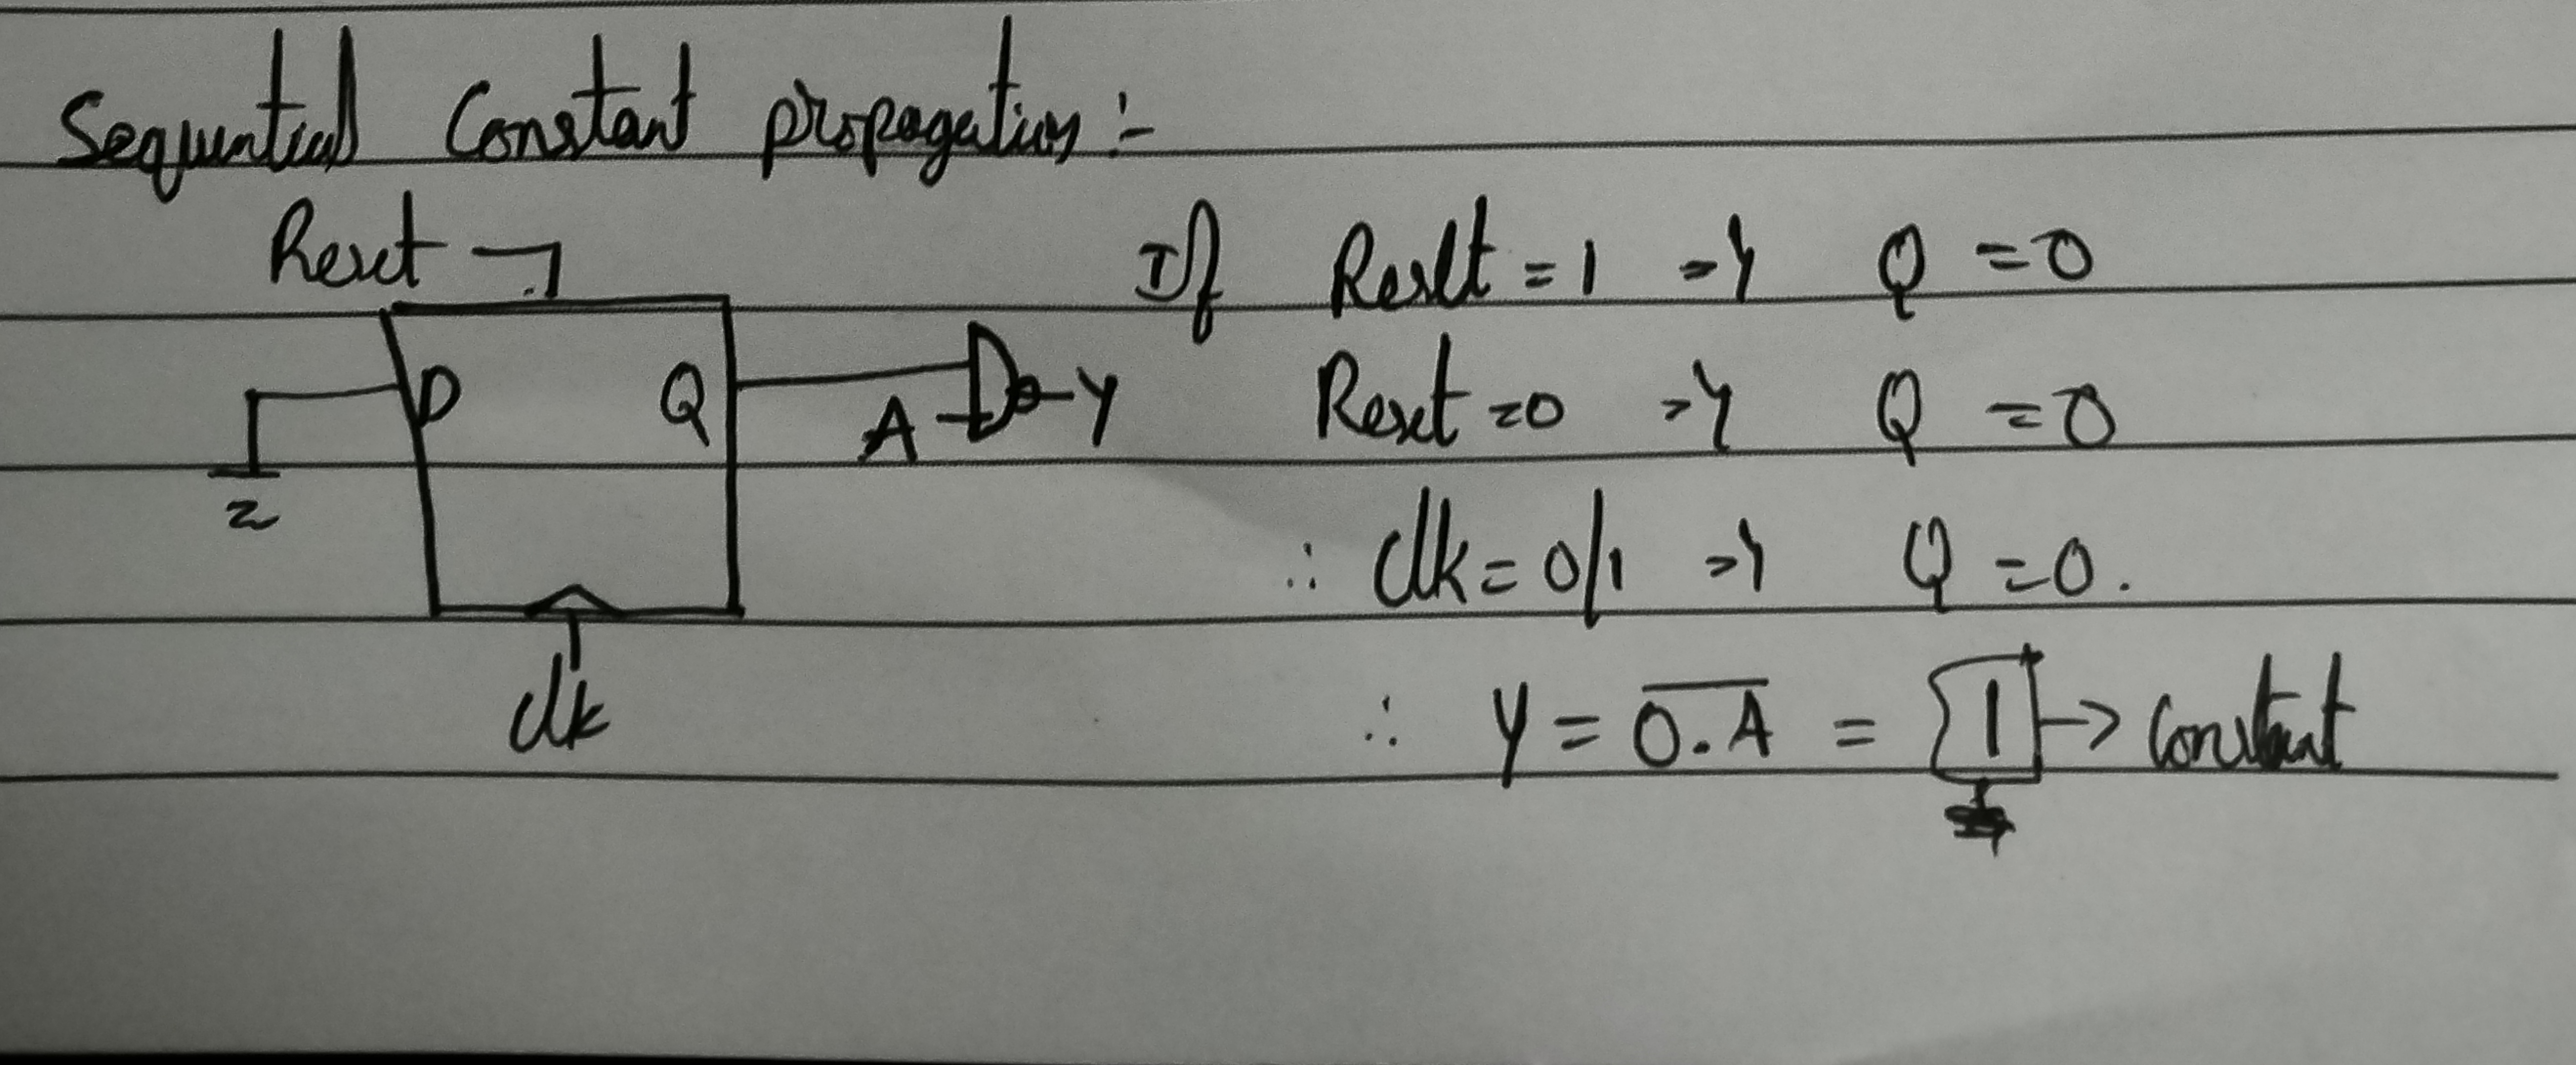 Sequential Constant propagation :-
Reset
If Reset = 1 => Q = 0
D Q A Y
Reset = 0 => Q = 0
clk = 0/1 => Q = 0.
clk
∴ Y = \overline{0.A} = 1 → Constant